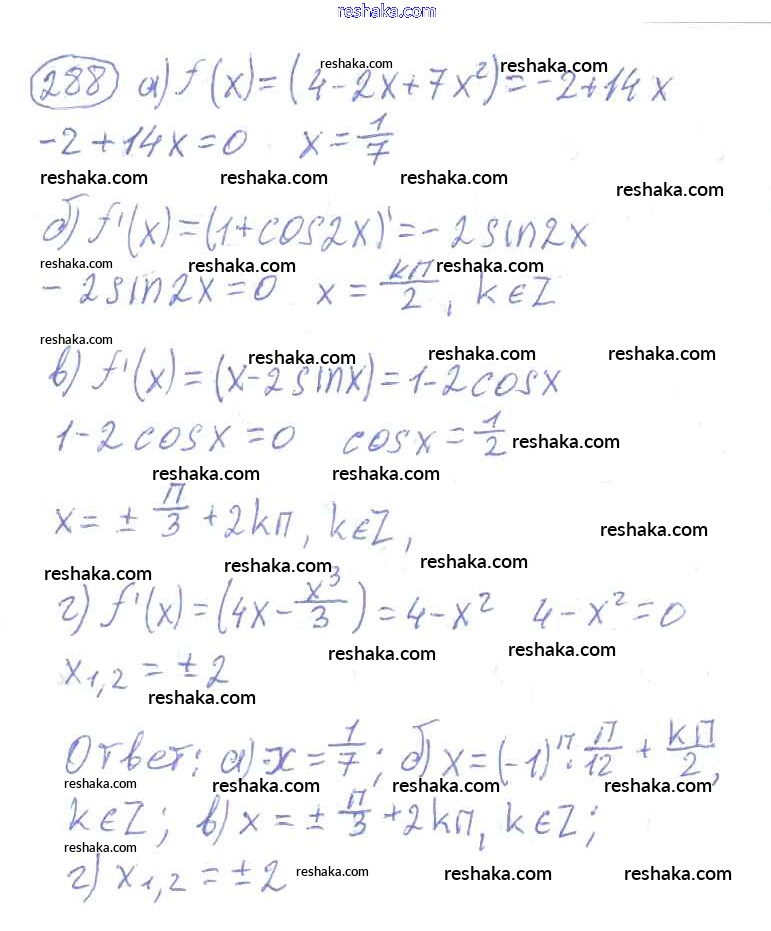 reshaka.com
288 а) f(x) = (4 - 2x + 7x²) = -2 + 14x
-2 + 14x = 0 x = 1/7
reshaka.com reshaka.com
reshaka.com reshaka.com reshaka.com reshaka.com
б) f'(x) = (1 + cos2x)' = -2sin2x
reshaka.com reshaka.com reshaka.com
- 2sin2x = 0 x = kП/2, k∈Z
reshaka.com
reshaka.com reshaka.com reshaka.com
в) f'(x) = (x - 2sinx) = 1 - 2cosx
1 - 2cosx = 0 cosx = 1/2 reshaka.com
reshaka.com reshaka.com
x = ± П/3 + 2kП, k∈Z, reshaka.com
reshaka.com reshaka.com reshaka.com
г) f'(x) = (4x - x³/3) = 4 - x² 4 - x² = 0
reshaka.com reshaka.com
x1,2 = ±2
reshaka.com
Ответ: а) x = 1/7; б) x = (-1)ⁿ · П/12 + kП/2,
reshaka.com reshaka.com reshaka.com reshaka.com
k∈Z; в) x = ± П/3 + 2kП, k∈Z;
reshaka.com
г) x1,2 = ±2 reshaka.com reshaka.com reshaka.com